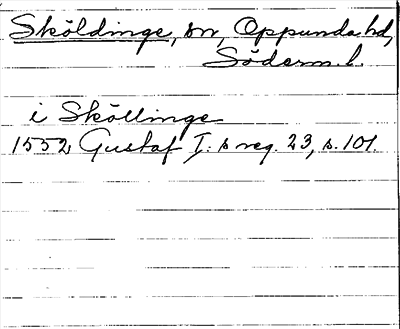 Sköldinge, sn, Oppunda hd,
Söderm. l.
i Sköllinge
1552 Gustaf I. s reg. 23, s. 101.